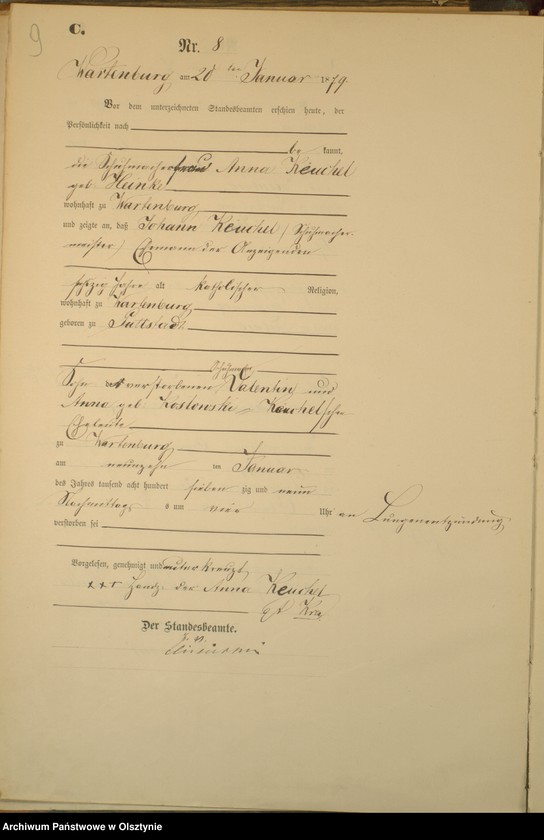 9
C.
Nr. 8
Wartenburg am 20 ten Januar 1879.
Vor dem unterzeichneten Standesbeamten erschien heute, der
Persönlichkeit nach
be kannt,
die Schuhmacherfrau Anna Keuchel
geb Heinke
wohnhaft zu Wartenburg
und zeigte an, daß Johann Keuchel (Schuhmacher-
meister) Ehemann der Anzeigenden
sechzig Jahre alt katholischer Religion,
wohnhaft zu Wartenburg
geboren zu
Schuhmacher
Sohn des verstorbenen Valentin und
Anna geb Koslowski Keuchelschen
Eheleute
zu Wartenburg
am neunzehn ten Januar
des Jahres tausend acht hundert sieben zig und neun
Nachmittags um vier Uhr an Lungenentzündung
verstorben sei
Vorgelesen, genehmigt und unterkreuzt
+++ Handz. der Anna Keuchel
Der Standesbeamte.
Archiwum Państwowe w Olsztynie